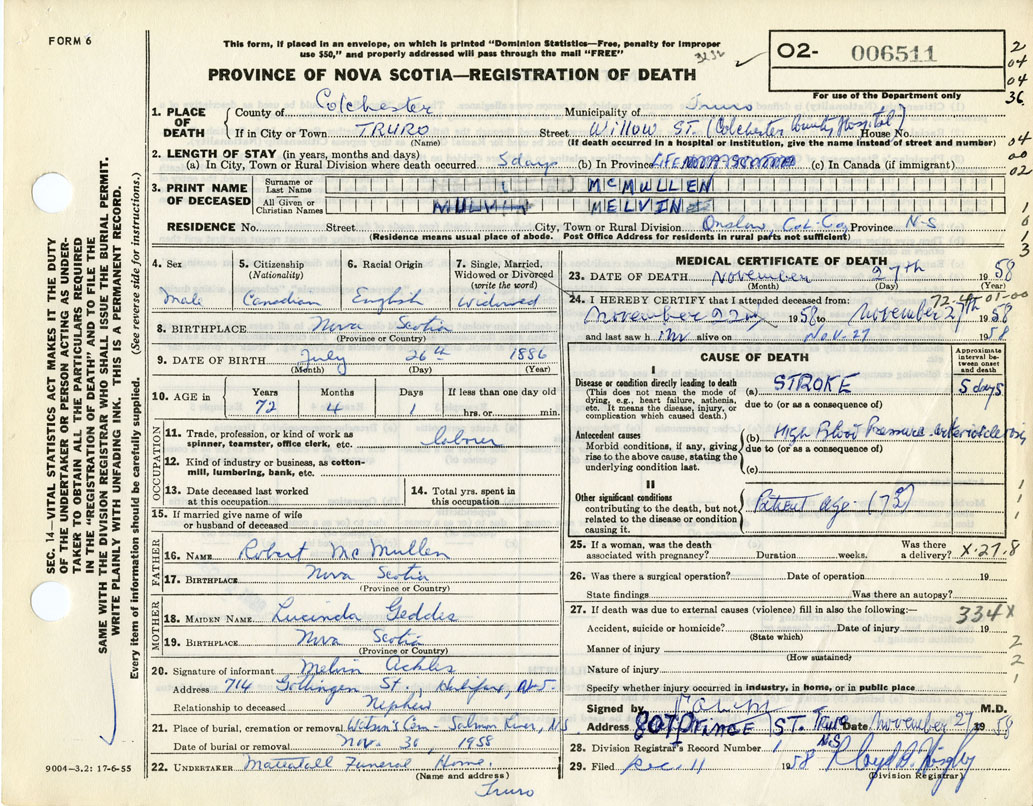 FORM 6
This form, if placed in an envelope, on which is printed "Dominion Statistics—Free, penalty for improper
use $50," and properly addressed will pass through the mail "FREE"
3232
PROVINCE OF NOVA SCOTIA—REGISTRATION OF DEATH
02- 006511
For use of the Department only
2
04
04
36
04
00
02
1. PLACE OF DEATH
County of Colchester Municipality of Truro
If in City or Town TRURO Street Willow ST. (Colchester County Hospital) House No.
(If death occurred in a hospital or institution, give the name instead of street and number)
2. LENGTH OF STAY (in years, months and days)
(a) In City, Town or Rural Division where death occurred 5 days (b) In Province LIFE (c) In Canada (if immigrant)
3. PRINT NAME OF DECEASED
Surname or Last Name McMULLEN
All Given or Christian Names MELVIN
RESIDENCE No. Street City, Town or Rural Division Onslow, Col. Co. Province N-S
(Residence means usual place of abode. Post Office Address for residents in rural parts not sufficient)
4. Sex
Male
5. Citizenship
(Nationality)
Canadian
6. Racial Origin
English
7. Single, Married, Widowed or Divorced
(write the word)
Widowed
8. BIRTHPLACE Nova Scotia
(Province or Country)
9. DATE OF BIRTH July 26th 1886
(Month) (Day) (Year)
10. AGE in
Years 72
Months 4
Days 1
If less than one day old
hrs. or min.
OCCUPATION
11. Trade, profession, or kind of work as
spinner, teamster, office clerk, etc. laborer
12. Kind of industry or business, as cotton-
mill, lumbering, bank, etc.
13. Date deceased last worked
at this occupation
14. Total yrs. spent in
this occupation
15. If married give name of wife
or husband of deceased
FATHER
16. NAME Robert McMullen
17. BIRTHPLACE Nova Scotia
(Province or Country)
MOTHER
18. MAIDEN NAME Lucinda Geddes
19. BIRTHPLACE Nova Scotia
(Province or Country)
20. Signature of informant Melvin Ackles
Address 714 Gottingen St., Halifax, N.S.
Relationship to deceased Nephew
21. Place of burial, cremation or removal Watson's Cem - Salmon River, NS
Date of burial or removal Nov. 30, 1958
22. UNDERTAKER Mattatall Funeral Home,
(Name and address)
Truro
MEDICAL CERTIFICATE OF DEATH
23. DATE OF DEATH November 27th 1958
(Month) (Day) (Year)
72-4 01-00
24. I HEREBY CERTIFY that I attended deceased from:
November 22nd 1958 to November 27th 1958
and last saw him alive on Nov. 27 1958
CAUSE OF DEATH
Approximate interval between onset and death
I
Disease or condition directly leading to death
(This does not mean the mode of
dying, e.g., heart failure, asthenia,
etc. It means the disease, injury, or
complication which caused death.)
(a) STROKE 5 days
due to (or as a consequence of)
Antecedent causes
Morbid conditions, if any, giving
rise to the above cause, stating the
underlying condition last.
(b) High Blood Pressure - arteriosclerosis
due to (or as a consequence of)
(c)
II
Other significant conditions
contributing to the death, but not
related to the disease or condition
causing it.
Patient age (72)
25. If a woman, was the death
associated with pregnancy? Duration weeks. Was there
a delivery? X-27.8
26. Was there a surgical operation? Date of operation 19
State findings Was there an autopsy?
27. If death was due to external causes (violence) fill in also the following:—
334X
Accident, suicide or homicide? Date of injury 19
(State which)
Manner of injury
(How sustained)
Nature of injury
Specify whether injury occurred in industry, in home, or in public place
Signed by M.D.
Address 807 PRINCE ST. Truro N.S Date November 27 1958
28. Division Registrar's Record Number 1
29. Filed Dec. 11 1958
(Division Registrar)
SEC. 14—VITAL STATISTICS ACT MAKES IT THE DUTY
OF THE UNDERTAKER OR PERSON ACTING AS UNDER-
TAKER TO OBTAIN ALL THE PARTICULARS REQUIRED
IN THE "REGISTRATION OF DEATH" AND TO FILE THE
SAME WITH THE DIVISION REGISTRAR WHO SHALL ISSUE THE BURIAL PERMIT.
WRITE PLAINLY WITH UNFADING INK. THIS IS A PERMANENT RECORD.
Every item of information should be carefully supplied. (See reverse side for instructions.)
9004—3.2: 17-6-55